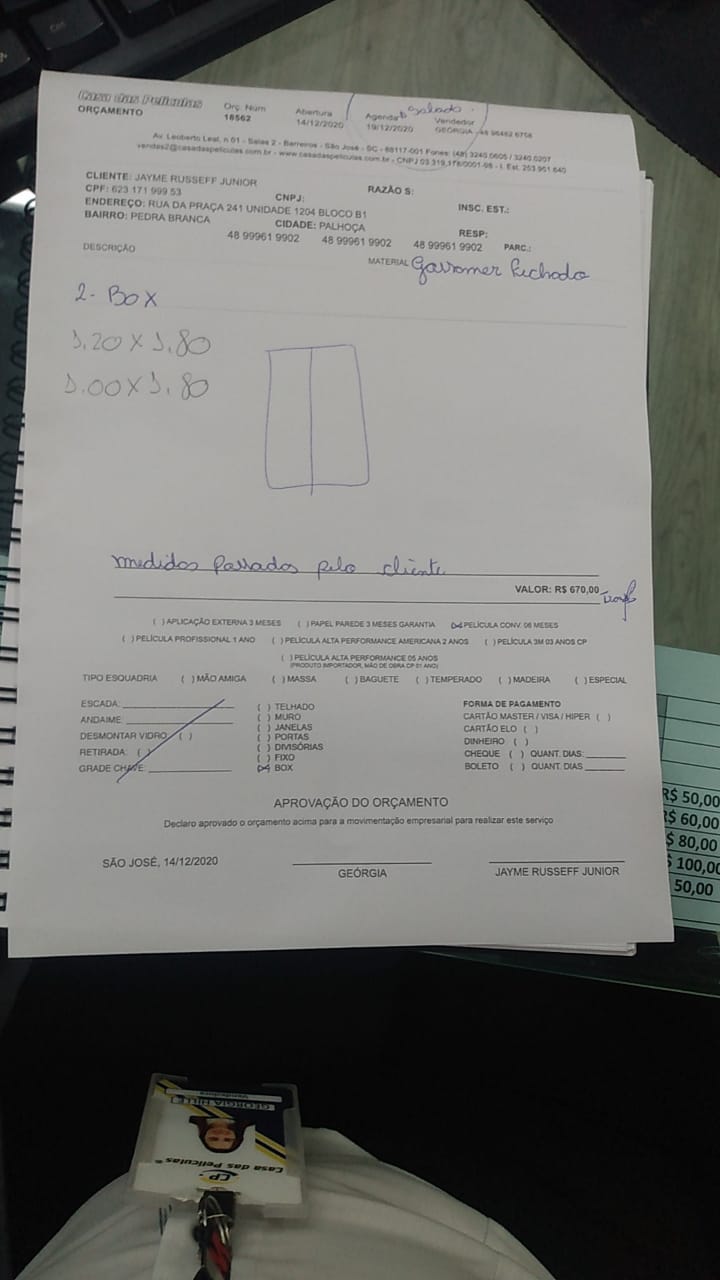 Casa das Películas
ORÇAMENTO
Orç. Num
18562
Abertura
14/12/2020
Agenda
19/12/2020
Sabado
Vendedor
GEÓRGIA - 48 98482 6758
Av. Leoberto Leal, n 01 - Salas 2 - Barreiros - São José - SC - 88117-001 Fones: (48) 3240.0605 / 3240.0207
vendas2@casadaspeliculas.com.br - www.casadaspeliculas.com.br - CNPJ 03.319.178/0001-98 - I. Est. 253.951.640
CLIENTE: JAYME RUSSEFF JUNIOR
RAZÃO S:
CPF: 623 171 999 53
CNPJ:
INSC. EST.:
ENDEREÇO: RUA DA PRAÇA 241 UNIDADE 1204 BLOCO B1
BAIRRO: PEDRA BRANCA
CIDADE: PALHOÇA
RESP:
48 99961 9902 48 99961 9902 48 99961 9902 PARC.:
DESCRIÇÃO
MATERIAL
2- BOX
1.20 X 1.80
1.00 X 1.80
medidas passados pelo cliente
VALOR: R$ 670,00
( )APLICAÇÃO EXTERNA 3 MESES ( )PAPEL PAREDE 3 MESES GARANTIA (X)PELÍCULA CONV. 06 MESES
( )PELÍCULA PROFISSIONAL 1 ANO ( )PELÍCULA ALTA PERFORMANCE AMERICANA 2 ANOS ( )PELÍCULA 3M 03 ANOS CP
( )PELÍCULA ALTA PERFORMANCE 05 ANOS
(PRODUTO IMPORTADOR, MÃO DE OBRA CP 01 ANO)
TIPO ESQUADRIA ( )MÃO AMIGA ( )MASSA ( )BAGUETE ( )TEMPERADO ( )MADEIRA ( )ESPECIAL
ESCADA:
ANDAIME:
DESMONTAR VIDRO: ( )
RETIRADA: ( )
GRADE CHAVE:
( ) TELHADO
( ) MURO
( ) JANELAS
( ) PORTAS
( ) DIVISÓRIAS
( ) FIXO
(X) BOX
FORMA DE PAGAMENTO
CARTÃO MASTER / VISA / HIPER ( )
CARTÃO ELO ( )
DINHEIRO ( )
CHEQUE ( ) QUANT. DIAS:
BOLETO ( ) QUANT. DIAS
APROVAÇÃO DO ORÇAMENTO
Declaro aprovado o orçamento acima para a movimentação empresarial para realizar este serviço
SÃO JOSÉ, 14/12/2020
GEÓRGIA
JAYME RUSSEFF JUNIOR
R$ 50,00
R$ 60,00
$ 80,00
$ 100,00
50,00
Casa das Películas
CP
Vendedora